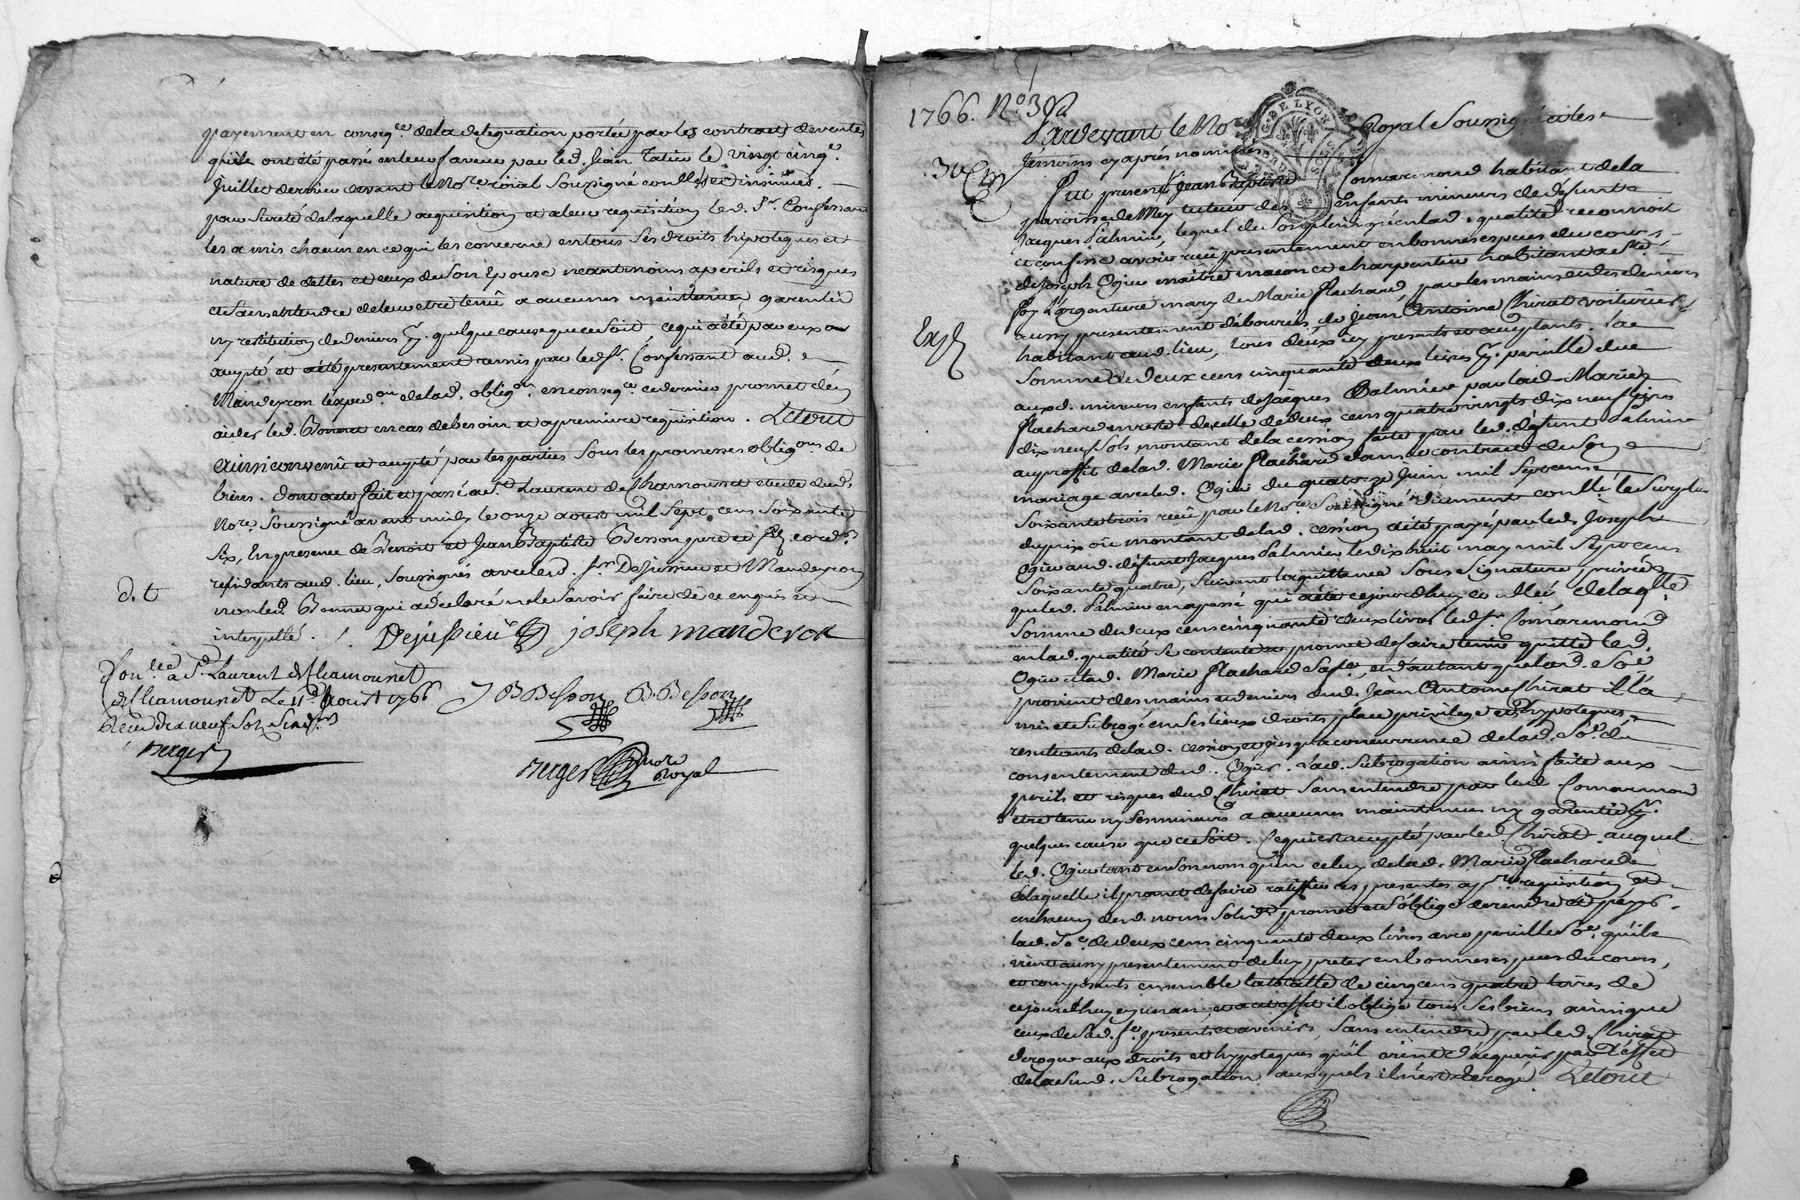 payement en conseq.ce de la delegation portée par les contracts de ventes
qu'ils ont été passé en leur faveur par led. Jean le vingt cinq.e
Juillet dernier devant le No.re roial soussigné et insinués.
pour sureté de laquelle requisition et a leur requisition led. S.r Confessant
les a mis chacun en ce qui les concerne en tous ses droits hipoteques et
nature de dettes et ceux de son Epouse neantmoins a perils et risques
et sans entendre de leur etre tenû a aucunes maintenüe garentie
ny restitution de deniers quelque cause que ce soit ce qui a été par eux
accepté et a été presentement remis par led. S.r Confessant aud.
Mandeyron l'exped.on de lad. oblig.on en conseq.ce ce dernier promet d'en
aider led. Bonnet en cas de besoin et a premiere requisition. Letout
Ainsi convenû et accepté par les parties sous les promesses oblig.ons de
biens. Dont acte fait et passé a S.t Laurent de Chamousset etude dud.
No.re soussigné avant midy le onze aoust mil sept cens soixante
six, En presence de Benoit et Jean Baptiste Besson pere et fils
residants aud. lieu, soussignés avec led. S.r Dejussieu et Mandeyron
non led. Bonnet qui a déclaré ne le savoir faire de ce enquis et
interpellé.
d. t
Dejussieu joseph manderon
J B Besson B. Besson
Con.lée a S.t Laurent de Chamousset
de Chamousset Le 11.e Aoust 1766
Receu dix neuf sols six d.rs
Berger
Berger nore Royal
1766. N.o 392
Pardevant le No.re Royal Soussigné et les
témoins cy après nommés
Fut present Jean Baptiste Comarmond habitant de la
paroisse de Mey tuteur des Enfants mineurs de deffunt
Jacques Palmier, lequel de son plein gré en lad. qualité reconnoit
et confesse avoir reçû presentement en bonnes especes du cours
de Joseph Ogier maitre maçon et charpentier habitant a Ste
Foy L'argentiere mary de Marie Flachard par les mains et des deniers
aussy presentement débourés, de Jean Antoine Chirat voiturier
habitant aud. lieu, tous deux icy presents et acceptants. la
Exp.
somme de deux cens cinquante deux livres pareille due
auxd. mineurs enfants de Jacques Palmier par lad. Marie
Flachard en reste de celle de deux cens quatre vingts dix neuf livres
dix neuf sols montant de la cession faite par led. défunt Palmier
au proffit de lad. Marie Flachard dans le contract de son
mariage avec led. Ogier du quatorze Juin mil sept cens
soixante trois reçu par le No.re soussigné dûement conllé le surplus
du prix ou montant de lad. cession a été payé par led. Joseph
Ogier aud. défunt Jacques Palmier le dix huit may mil sept cens
soixante quatre, suivant la quittance sous signature privée
que led. Palmier en a passé qui a été cejourdhuy conllée de laq.lle
somme de deux cens cinquante deux livres led. S.r Comarmond
en lad. qualité se contente et promet de faire tenir quitte led.
Ogier et lad. Marie Flachard sa fe. et d'autant que lad. so.e
provient des mains et deniers dud. Jean Antoine Chirat il l'a
mis et subrogé en ses lieux droits place privilege et hypoteques
resultants de lad. cession et jusqu'a concurrance de lad. so.e du
consentement dud. Ogier. Lad. subrogation ainsi faite aux
perils et risques dud. Chirat sans entendre par led. Comarmond
etre tenu ny ses mineurs a aucunes maintenües ny garentie
quelque cause que ce soit. Ce qui est accepté par led. Chirat auquel
led. Ogier tant en son nom qu'en celuy de lad. Marie Flachard
de laquelle il promet de faire ratiffier ces presentes a p.re requisition et
en chacun desd. noms solid. promet et s'oblige de rendre et payer
lad. so.e de deux cens cinquante deux livres avec pareille so.e qu'il
vient aussy presentement de luy preter en bonnes especes du cours,
et composants ensemble la totalle de cinq cens quatre livres de
cejourdhuy en un an, et a cet effet il oblige tous ses biens ainsi que
ceux de sad. fe. presents et avenirs, sans entendre par led. Chirat
deroger aux droits et hypoteques qu'il vient d'acquerir par l'effet
de la susd. subrogation auxquels il n'est derogé Letout